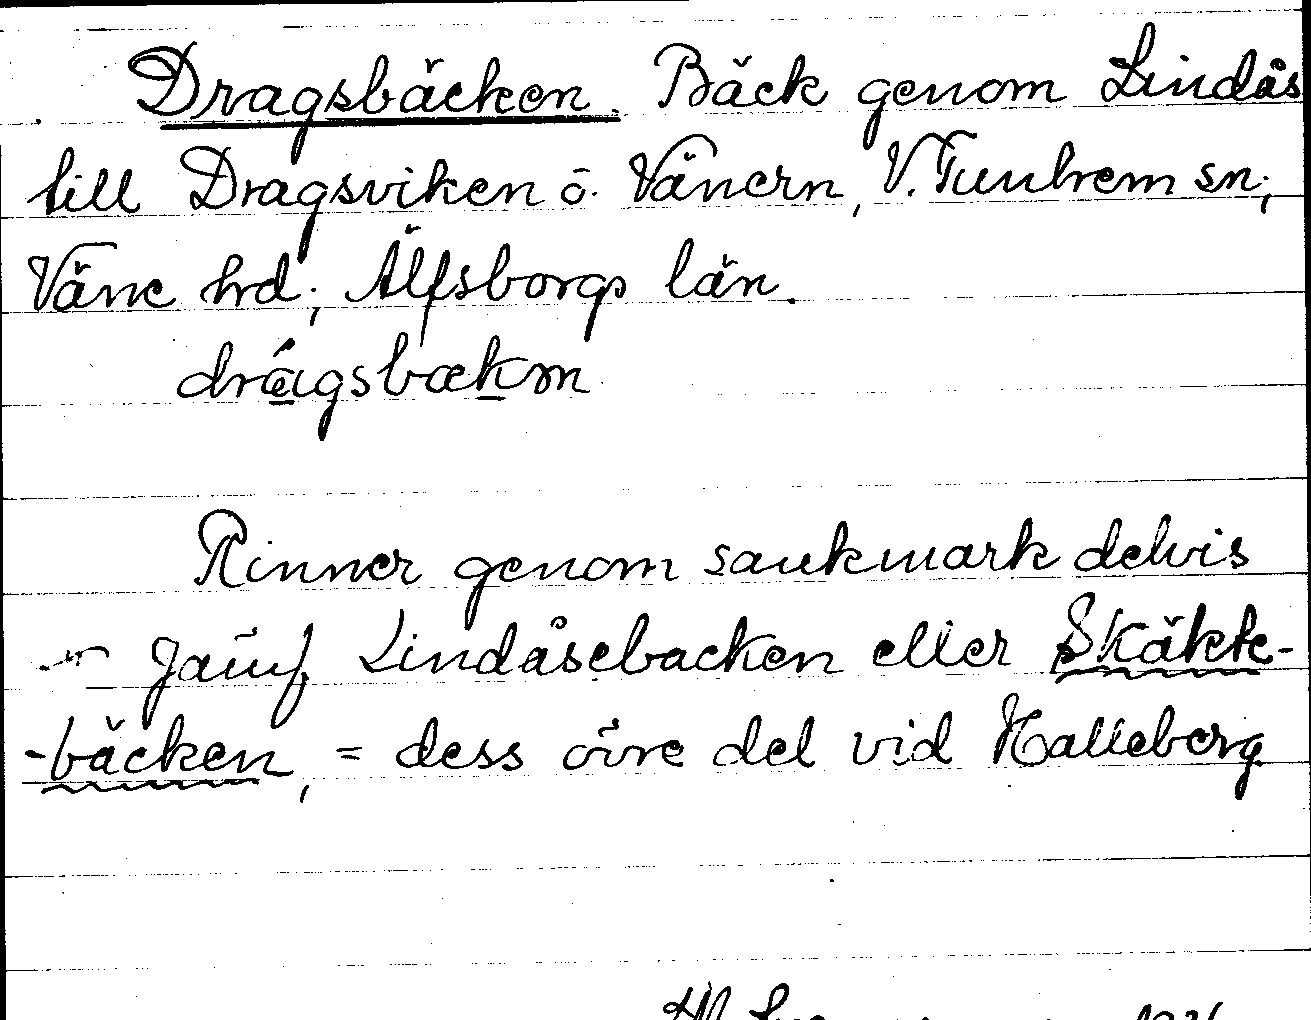 Dragsbäcken. Bäck genom Lindås
till Dragsviken o. Vänern, V. Tunhem sn;
Väne hd; Älfsborgs län.
drágsbækm
Rinner genom sankmark delvis
Jämf. Lindåsebacken eller Skäkte-
-bäcken, = dess övre del vid Halleberg